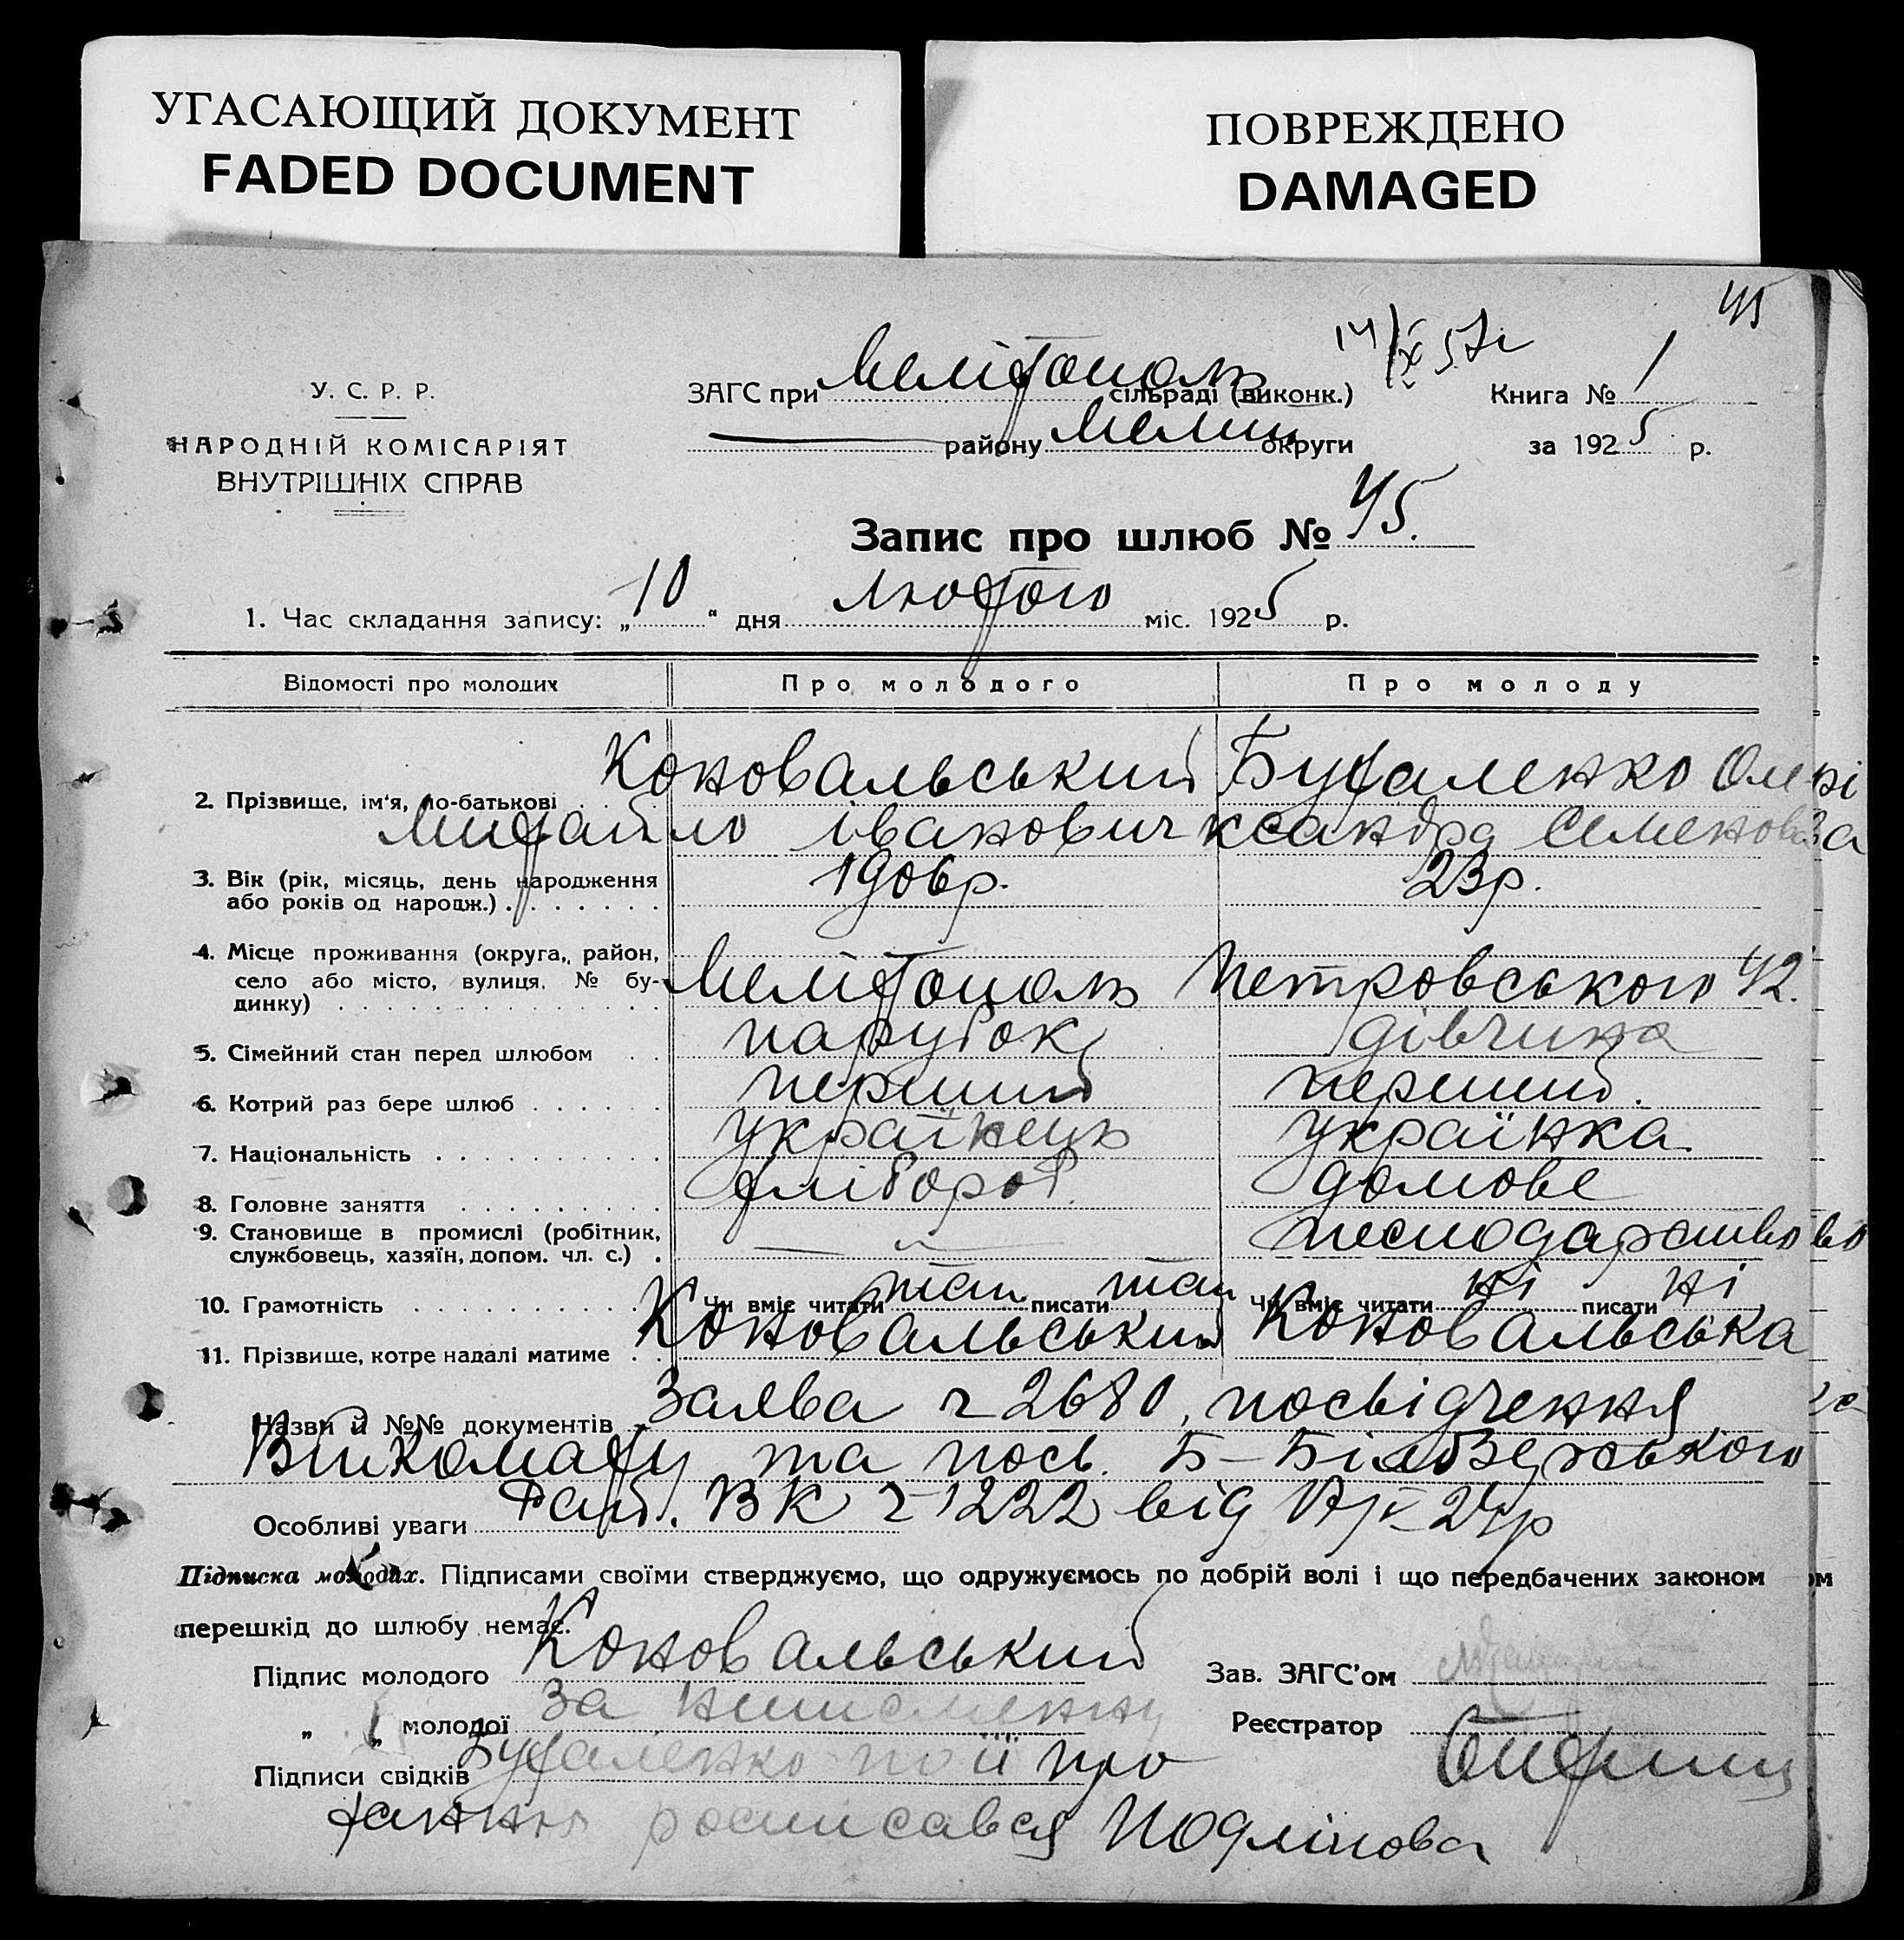 УГАСАЮЩИЙ ДОКУМЕНТ
FADED DOCUMENT
ПОВРЕЖДЕНО
DAMAGED
45
14/IX 57г
У. С. Р. Р.
НАРОДНІЙ КОМІСАРІЯТ
ВНУТРІШНІХ СПРАВ
ЗАГС при Мелітополь сільраді (виконк.)
Книга № 1
району Мелит округи
за 1925 р.
Запис про шлюб № 45.
1. Час складання запису: „10" дня лютого міс. 1925 р.
Відомості про молодих
Про молодого
Про молоду
2. Прізвище, ім'я, по-батькові
Коновальський Михайло Іванович
Бухаленко Олександра Семенова
3. Вік (рік, місяць, день народження або років од народж.)
1906р.
23р.
4. Місце проживання (округа, район, село або місто, вулиця, № будинку)
Мелітополь Петровського 42.
5. Сімейний стан перед шлюбом
парубок
дівчина
6. Котрий раз бере шлюб
перший
перший.
7. Національність
українець
українка
8. Головне заняття
хлібороб.
домове
9. Становище в промислі (робітник, службовець, хазяїн, допом. чл. с.)
10. Грамотність
Чи вміє читати так писати так
Чи вміє читати ні писати ні
11. Прізвище, котре надалі матиме
Коновальський
Коновальська
Назви й №№ документів Заява ч 2680, посвідчення
та посв. Б-Білозерського
Особливі уваги Рай. ВК ч 1222 від
Підписка молодих. Підписами своїми стверджуємо, що одружуємось по добрій волі і що передбачених законом
перешкід до шлюбу немає.
Підпис молодого Коновальський
Зав. ЗАГС'ом
„ „ молодої за неписьменну
Реєстратор
Підписи свідків Бухаленко по її про
хання росписався